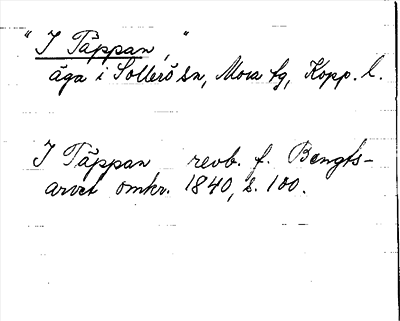 "I Täppan,"
äga i Sollerö sn, Mora tg, Kopp. l.
I Täppan revb. f. Bengts-
arvet omkr. 1840, s. 100.